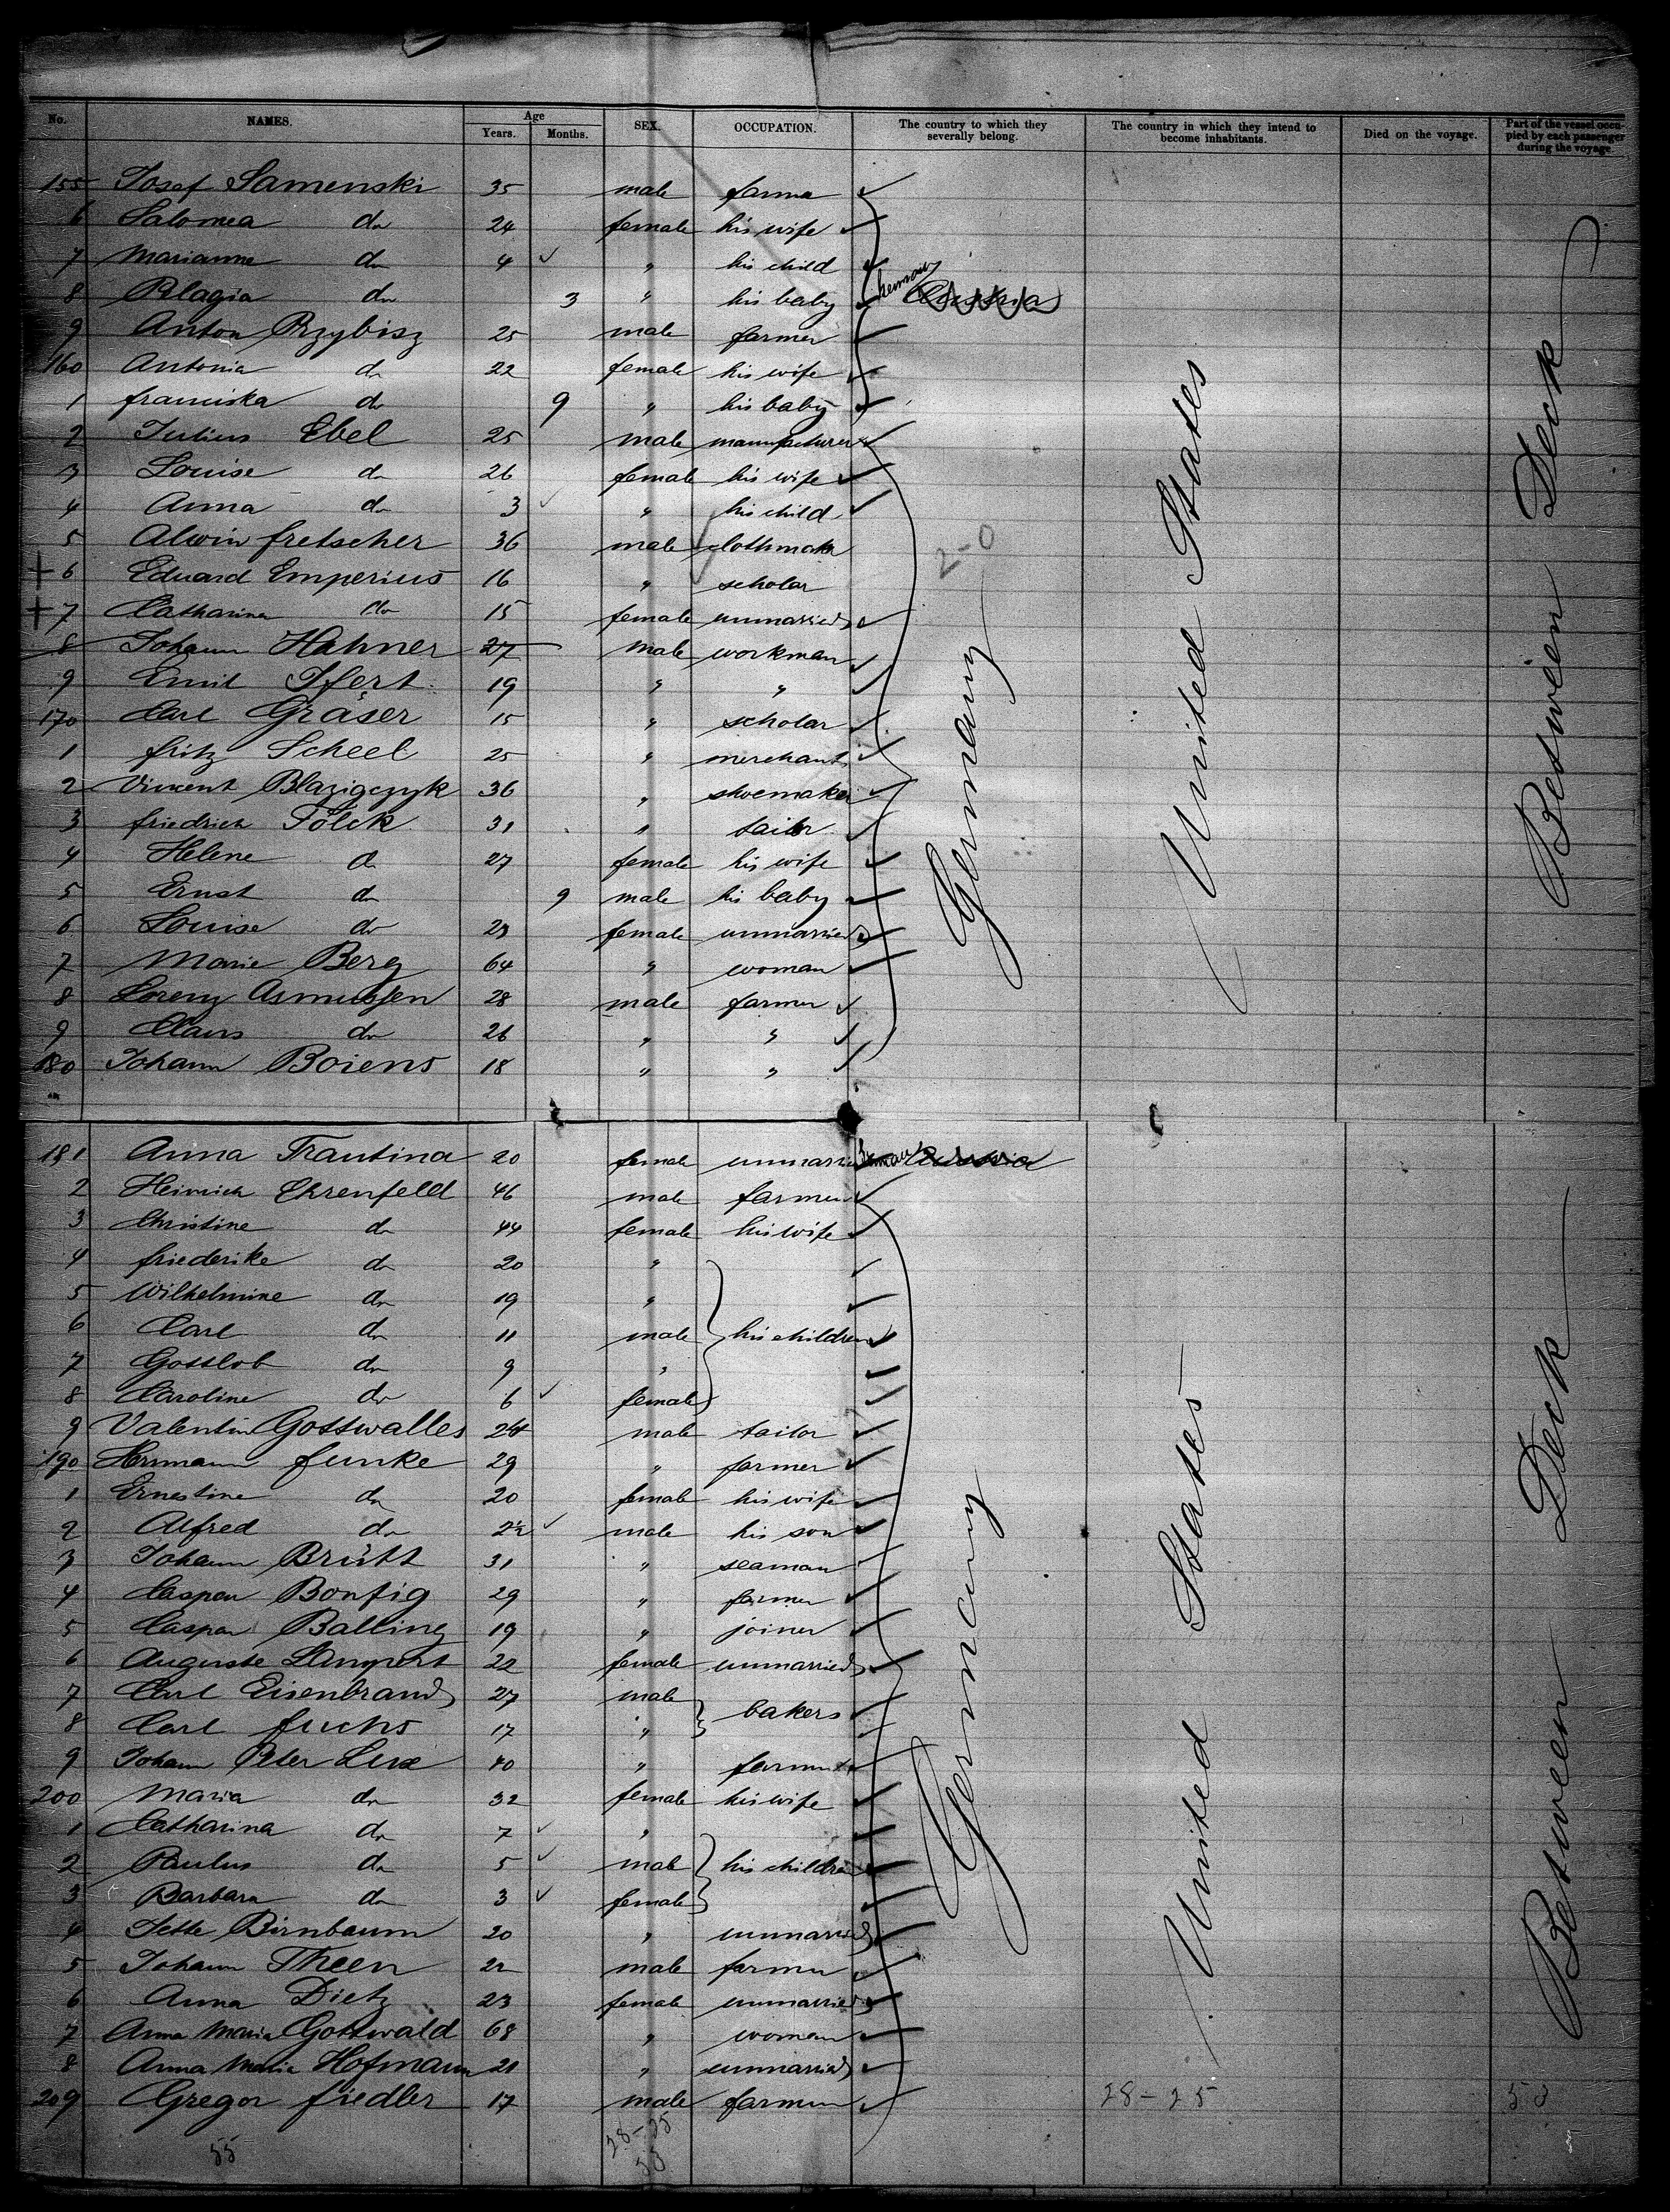 No. NAMES. Age Years. Months. SEX. OCCUPATION. The country to which they severally belong. The country in which they intend to become inhabitants. Died on the voyage. Part of the vessel occupied by each passenger during the voyage
155 Josef Samenski 35 male farmer
6 Salomea do 24 female his wife
7 Marianne do 4 " his child
8 Blagia do 3 " his baby Germany Austria
9 Anton Przybisz 25 male farmer
160 Antonia do 22 female his wife
1 franciska do 9 " his baby
2 Julius Ebel 25 male manufacturer
3 Louise do 26 female his wife
4 Anna do 3 " his child
5 Alwin fretscher 36 male clothmaker
+ 6 Eduard Emperius 16 " scholar
+ 7 Catharina do 15 female unmarried
8 Johann Hahner 27 male workman
9 Emil Ifert 19 " "
170 Carl Gräser 15 " scholar
1 fritz Scheel 25 " merchant
2 Vincent Blazigczyk 36 " shoemaker
3 friedrich Tölck 31 " tailor
4 Helene do 27 female his wife
5 Ernst do 9 male his baby
6 Louise do 23 female unmarried
7 Marie Berg 64 " woman
8 Lorenz Asmussen 28 male farmer
9 Claus do 26 " "
180 Johann Boiens 18 " "
2-0
Germany
United States
Between Deck
181 Anna Trautina 20 female unmarried Germany Austria
2 Heinrich Ehrenfeld 46 male farmer
3 Christine do 44 female his wife
4 friederike do 20 "
5 Wilhelmine do 19 "
6 Carl do 11 male his children
7 Gottlob do 9 "
8 Caroline do 6 female
9 Valentin Gottwalles 24 male tailor
190 Hermann funke 29 " farmer
1 Ernestine do 20 female his wife
2 Alfred do 2½ male his son
3 Johann Brütt 31 " seaman
4 Caspar Bonfig 29 " farmer
5 Caspar Balling 19 " joiner
6 Auguste Lampert 22 female unmarried
7 Carl Eisenbrand 27 male bakers
8 Carl fuchs 17 "
9 Johann Peter Lux 40 " farmer
200 Maria do 32 female his wife
1 Catharina do 7 "
2 Paulus do 5 male his children
3 Barbara do 3 female
4 Jette Birnbaum 20 " unmarried
5 Johann Theen 22 male farmer
6 Anna Dietz 23 female unmarried
7 Anna Maria Gottwald 68 " woman
8 Anna Maria Hofmann 21 " unmarried
209 Gregor fiedler 17 male farmer
Germany
United States
Between Deck
28-25
53
55
28-25
53